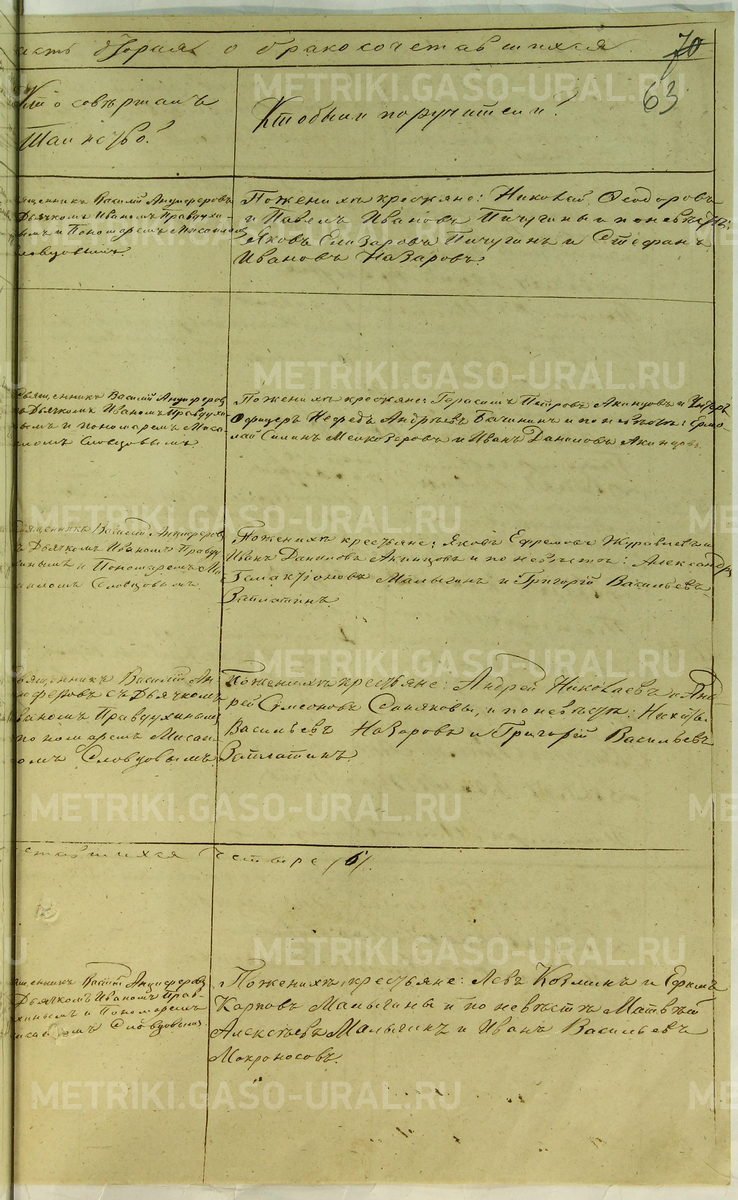 асть вторая о бракосочетавшихся.
70
63
Кто совершалъ
Таинство?
Кто были поручители?
вященникъ Василій Анциферовъ
Дьячкомъ Иваномъ Правдухи-
ымъ и Пономаремъ Мисаиломъ
ловцовымъ.
По женихѣ крестьяне: Николай Ѳеодоровъ
и Павелъ Ивановъ Пичугины и по невѣстѣ:
Яковъ Елизаровъ Пичугинъ и Стефанъ
Ивановъ Назаровъ.
Священникъ Василій Анциферовъ
Дьячкомъ Иваномъ Правдухи
ымъ и пономаремъ Миса
ломъ Словцовымъ
По женихѣ крестьяне: Герасимъ Петровъ Акинцовъ и Унтеръ
Офицеръ Нефедъ Андреевъ и по невѣстѣ: Ермо-
лай Силинъ Мелкозеровъ и Иванъ Даниловъ Акинцовъ.
Священникъ Василій Анциферовъ
Дьячкомъ Иваномъ Правду
инымъ и Пономаремъ Ми
аиломъ Словцовымъ
По женихѣ крестьяне: Яковъ Ефремовъ Журавлевъ и
Иванъ Даниловъ Акинцовъ и по невѣстѣ: Александръ
Малыгинъ и Григорій Васильевъ
Заплатинъ.
вященникъ Василій Ан
иферовъ съ Дьячкомъ
ваномъ Правдухинымъ
пономаремъ Мисаи
омъ Словцовымъ
По женихѣ крестьяне: Андрей Николаевъ и Анд-
рей Симеоновъ и по невѣстѣ:
Васильевъ Назаровъ и Григорій Васильевъ
Заплатинъ
етавшихся четыре /6/.
вященникъ Василій Анциферовъ
Дьячкомъ Иваномъ Прав-
хинымъ и Пономаремъ
исаиломъ Словцовымъ
По женихѣ крестьяне: Левъ Козминъ и Ефимъ
Карповъ Малыгины и по невѣстѣ Матвѣй
Алексѣевъ Малыгинъ и Иванъ Васильевъ
Мокроносовъ.
METRIKI.GASO-URAL.RU